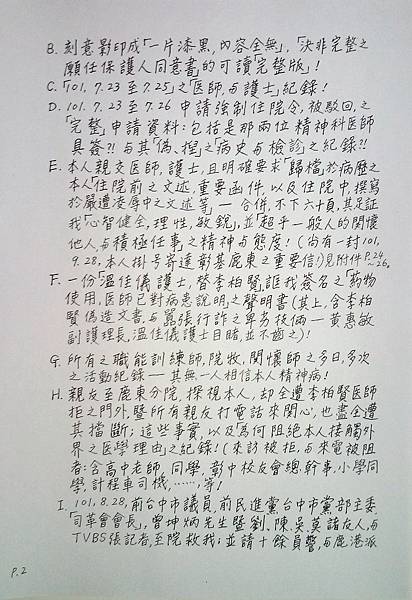 B. 刻意影印成「一片漆黑，內容全無」，「決非完整之
願任保護人同意書」的可讀完整版」!
C.「101. 7. 23 至 7.25」之「醫師，与護士」紀錄!
D. 101. 7. 23 至 7.26 申請強制住院令，被駁回之
「完整」申請資料：包括是那兩位精神科医師
具簽?! 与其「偽、捏」之「病史与檢診」之紀錄?!
E. 本人親交医師，護士，且明確要求「歸檔」於病歷之
本人「住院前之文述，重要函件，以及住院中，撰寫
於嚴遭凌辱中之文述等」一合併，不下六十頁，其足証
我「心智健全，理性，敏銳」，並「超乎一般人的関懷
他人，与積極任事」之精神与態度!（尚有一封101,
9.28，本人掛号寄達彰基鹿東之重要信!）見附件P.24
~26。
F. 一份「溫佳儀護士，替李柏賢，誆我簽名之「葯物
使用，医師已對病患說明」之聲明書（其上，含李柏
賢偽造文書，与囂張行詐之卑劣技倆 — 黃惠敏
副護理長，溫佳儀護士目睹，並不齒之)!
G. 所有之職能訓練師，院牧，関懷師之多日，多次
之活動紀錄 — 其無一人相信本人精神病!
H. 親友至鹿東分院，探視本人，却全遭李柏賢医師
拒之門外，暨所有親友打電話來関心，也盡全遭
其擋斷；這些事實，以及為何阻絶本人接觸外
界之医學理由」之紀錄!（來訪被拒，与來電被阻
者：含高中老師，同學，彰中校友會總幹事，小學同
學，計程車司機，……，等)!
I. 101,8.28，前台中市議員，前民進黨台中市黨部主委，
「司革會會長」，曾坤炳先生暨劉、陳、吳、莫諸友人，与
TVBS 張記者，至院救我；並請十餘員警，与鹿港派
P.2